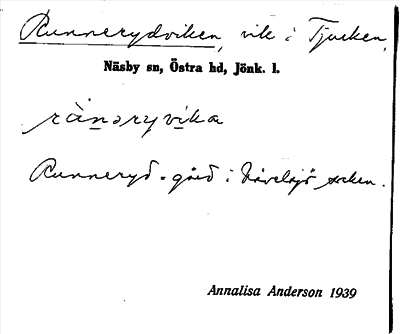 Runnerydviken, vik i Tjurken.
Näsby sn, Östra hd, Jönk. l.
rànəryvika
Runneryd = gård i Hävelsjö socken.
Annalisa Anderson 1939